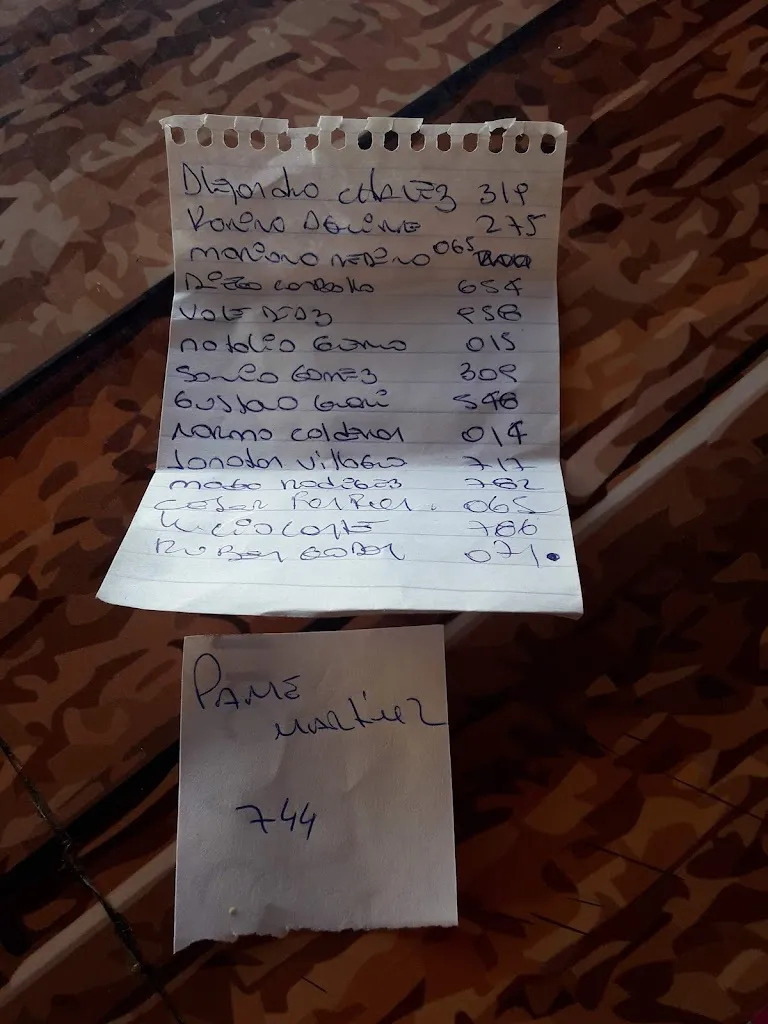 Alejandro CHAVEZ 319
Karina AGUIRRE 275
mariano MEDINO 065
DIEGO carballo 654
VALE DIAZ 958
natalia Gomo 015
Sonia GOMEZ 309
GUSTAVO 548
Norma coldenar 014
Jonatan Villagra 717
maso 782
CESAR Ferrer. 065
Lucia corte 786
RUBEN GOBER 071.
PAME
MARTINEZ
744